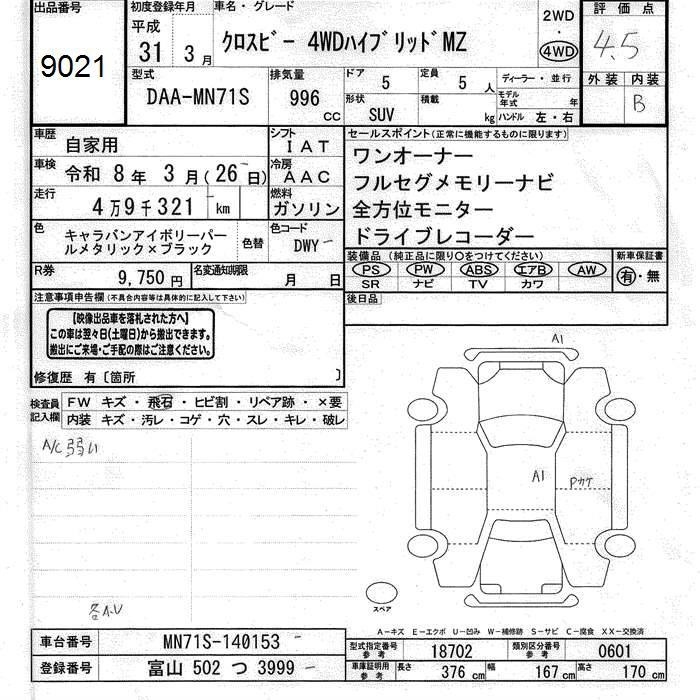 出品番号 初度登録年月 車名・グレード 評価点
9021 平成 31 3月 クロスビー 4WDハイブリッドMZ 2WD・4WD 4.5
型式 排気量 ドア 5 定員 5人 ディーラー・並行 外装 内装
DAA-MN71S 996 CC 形状 SUV 積載 kg モデル年式 年 ハンドル 左・右 B
車歴 自家用 シフト IAT セールスポイント(正常に機能するものに限ります)
車検 令和 8年 3月(26日) 冷房 AAC ワンオーナー
フルセグメモリーナビ
走行 4万9千321 km 燃料 ガソリン 全方位モニター
ドライブレコーダー
色 キャラバンアイボリーパー
ルメタリック×ブラック 色替 色コード DWY
装備品(純正品に限り○をつけてください) 新車保証書
PS PW ABS エアB AW 有・無
SR ナビ TV カワ
R券 9,750円 名変通知期限 月 日
後日品
注意事項申告欄(不具合内容等は具体的に記入して下さい)
【映像出品車を落札された方へ】
この車は翌々日(土曜日)から搬出できます。
搬出にご来場・ご手配の際はご注意ください。
修復歴 有〔箇所 〕
検査員記入欄 FW キズ・飛石・ヒビ割・リペア跡・×要
内装 キズ・汚レ・コゲ・穴・スレ・キレ・破レ
A1
A/C弱い
A1 Pカケ
各A・U
スペア
A-キズ E-エクボ U-凹み W-補修跡 S-サビ C-腐食 XX-交換済
車台番号 MN71S-140153
型式指定番号 参考 18702 類別区分番号 参考 0601
登録番号 富山 502 つ 3999
車庫証明用 参考 長さ 376 cm 幅 167 cm 高さ 170 cm